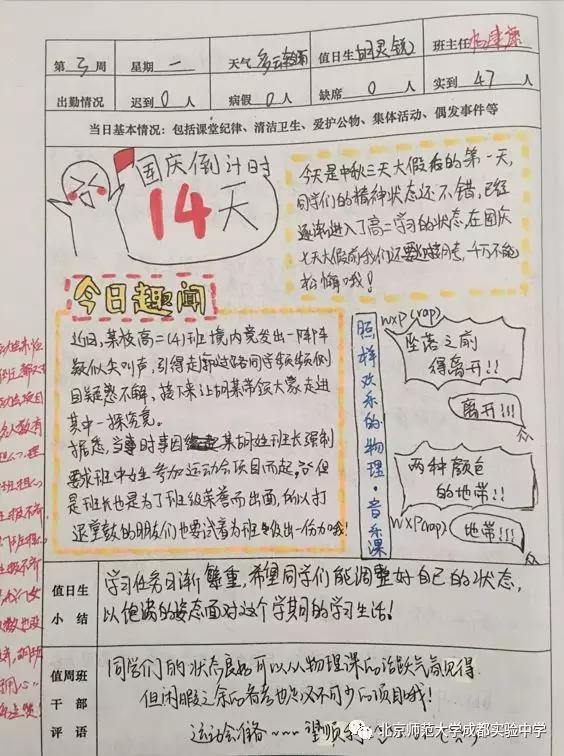 第 3 周 星期 一 天气 多云转晴 值日生 胡灵锐 班主任
出勤情况 迟到 0 人 病假 0 人 缺席 0 人 实到 47 人
当日基本情况：包括课堂纪律、清洁卫生、爱护公物、集体活动、偶发事件等
国庆倒计时
14天
今天是中秋三天大假后的第一天，
同学们的精神状态还不错，已经
逐渐进入了高二学习的状态，在国庆
七天大假前我们还要月考，千万不能
松懈哦！
今日趣闻
近日，某校高二(4)班境内竟发出一阵阵
疑似尖叫声，引得走廊过路同学频频侧
目疑惑不解，接下来让胡某带领大家走进
其中一探究竟。
据悉，当时事因某胡姓班长强制
要求班中女生参加运动会项目而起，但
是班长也是为了班级荣誉而出面，所以打
退堂鼓的朋友们也要试着为班级出一份力哦！
照样欢乐的物理·音乐课
WXP(rap)
坠落之前
得离开!!
离开!!!
两种颜色
的地带!!
WXP(rap)
地带!!!
值日生
小结
学习任务日渐繁重，希望同学们能调整好自己的状态，
以饱满的姿态面对这个学期的学习生活！
值周班
干部
评语
同学们的状态良好可以从物理课的活跃气氛见得
但闲暇之余的音考也是必不可少的项目哦！
运动会准备~~~~望顺利
北京师范大学成都实验中学